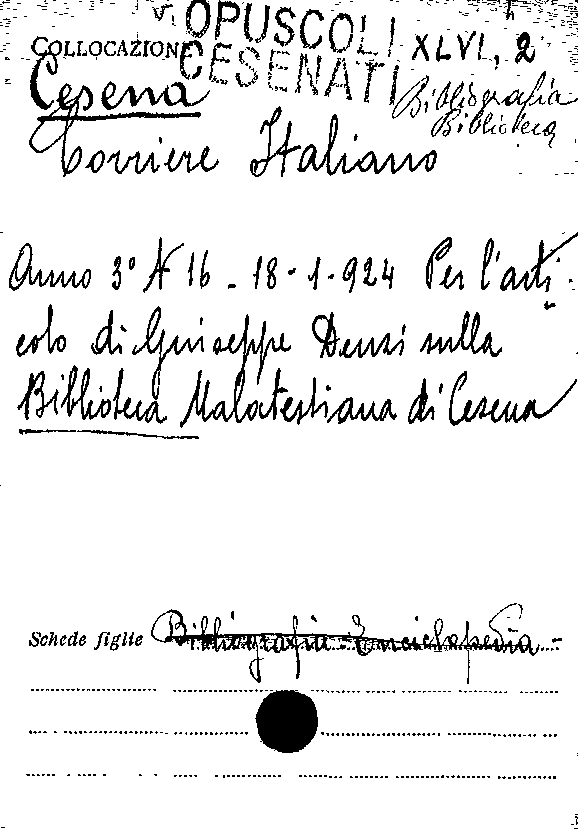 v. OPUSCOLI
COLLOCAZIONE CESENATI XLVI, 2
Cesena Bibliografia
Biblioteca
Corriere Italiano
Anno 3° N 16 - 18-1-924 Per l'arti-
colo di Giuseppe Densi sulla
Biblioteca Malatestiana di Cesena
Schede figlie Bibliografia - Enciclopedia -